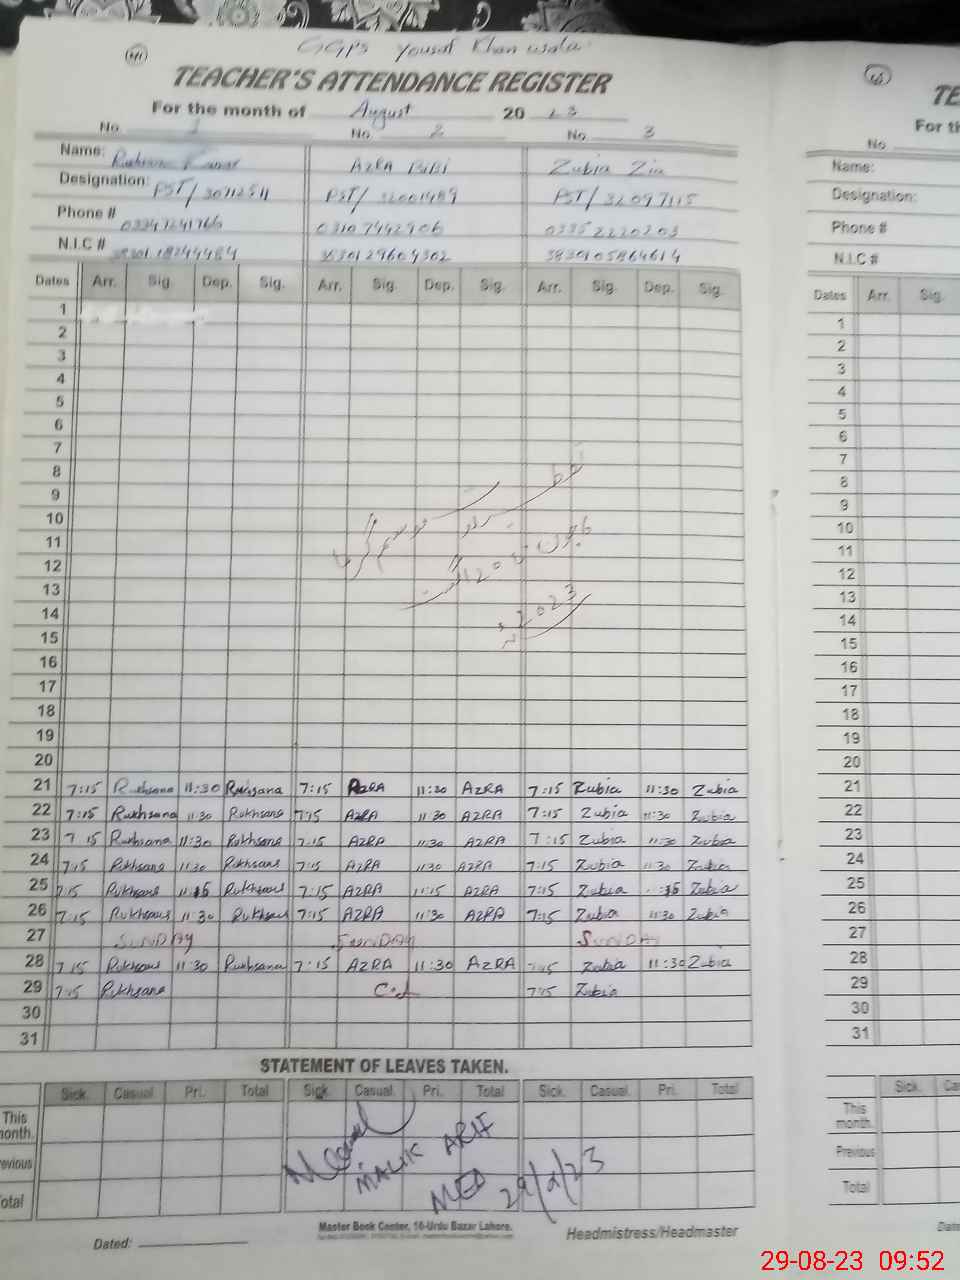 GGPS Yousaf Khan wala
TEACHER'S ATTENDANCE REGISTER
For the month of August 20 23
No. 1 No. 2 No. 3
Name: Rukhsana Kausar AZRA BiBi Zubia Zia
Designation: PST/30712511 PST/32001489 PST/32097115
Phone # 03347241766 03107442906 03352220203
N.I.C # 38301 18244484 3830129604302 3830105864614
Dates Arr. Sig. Dep. Sig. Arr. Sig. Dep. Sig. Arr. Sig. Dep. Sig.
1
2
3
4
5
6
7
8
9
10
11
12
13
14
15
16
17
18
19
20
تعطیلات موسم گرما
6 جون تا 20 اگست
2023ء
21 7:15 Rukhsana 11:30 Rukhsana 7:15 AZRA 11:30 AZRA 7:15 Zubia 11:30 Zubia
22 7:15 Rukhsana 11:30 Rukhsana 7:15 AZRA 11:30 AZRA 7:15 Zubia 11:30 Zubia
23 7:15 Rukhsana 11:30 Rukhsana 7:15 AZRA 11:30 AZRA 7:15 Zubia 11:30 Zubia
24 7:15 Rukhsana 11:30 Rukhsana 7:15 AZRA 11:30 AZRA 7:15 Zubia 11:30 Zubia
25 7:15 Rukhsana 11:15 Rukhsana 7:15 AZRA 11:15 AZRA 7:15 Zubia :15 Zubia
26 7:15 Rukhsana 11:30 Rukhsana 7:15 AZRA 11:30 AZRA 7:15 Zubia 11:30 Zubia
27 SUNDAY SUNDAY SUNDAY
28 7:15 Rukhsana 11:30 Rukhsana 7:15 AZRA 11:30 AZRA 7:15 Zubia 11:30 Zubia
29 7:15 Rukhsana C.L 7:15 Zubia
30
31
STATEMENT OF LEAVES TAKEN.
Sick. Casual. Pri. Total Sick. Casual. Pri. Total Sick. Casual. Pri. Total
This month.
Previous
Total
MALIK ARIF
MEA 29/8/23
Master Book Center, 16-Urdu Bazar Lahore.
Dated: Headmistress/Headmaster
TE
For th
No
Name:
Designation:
Phone #
N.I.C #
Dates Arr. Sig.
1
2
3
4
5
6
7
8
9
10
11
12
13
14
15
16
17
18
19
20
21
22
23
24
25
26
27
28
29
30
31
Sick. Ca
This month.
Previous
Total
Date
29-08-23 09:52